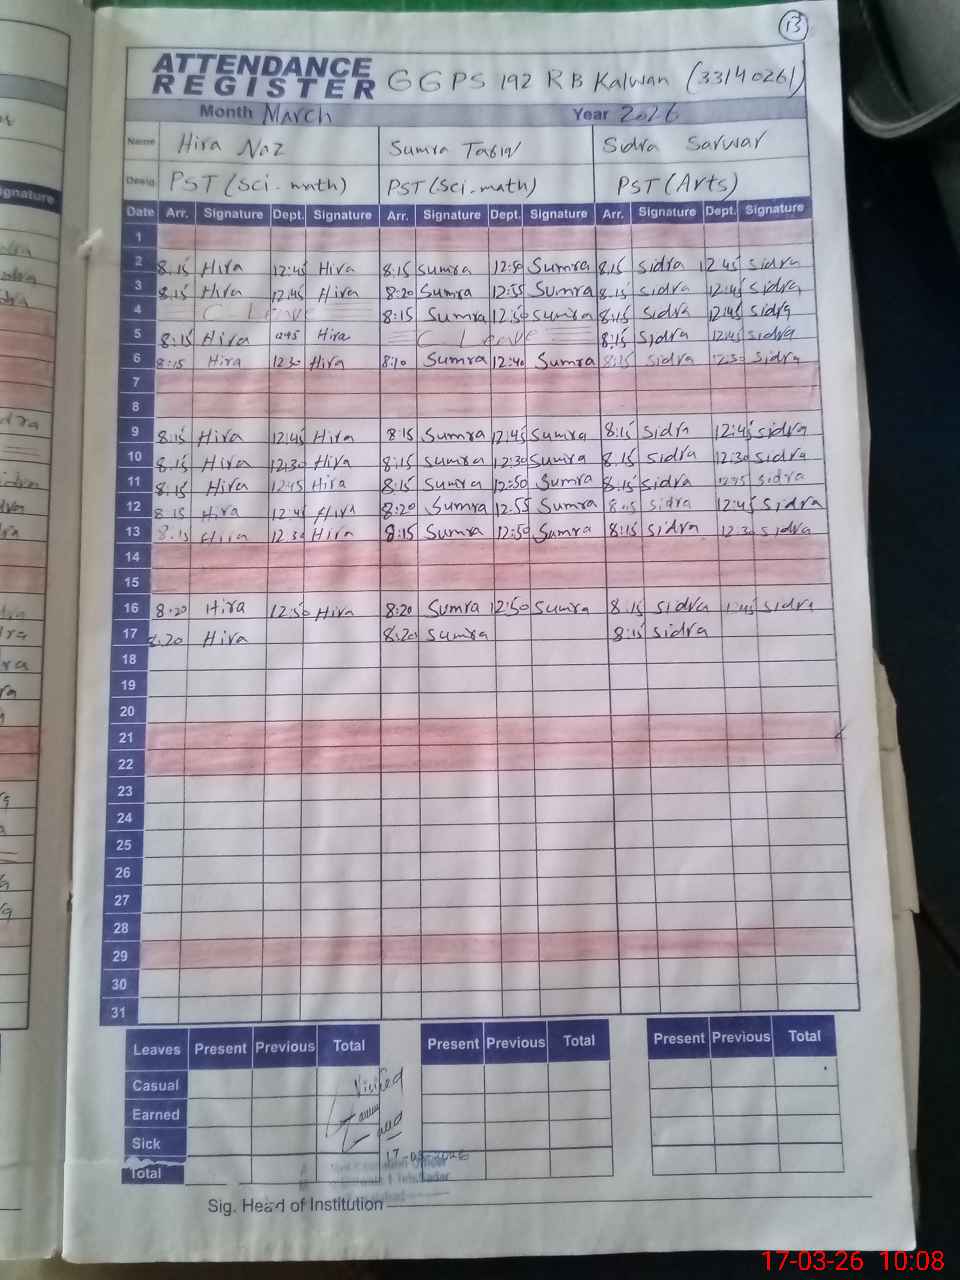 13
ATTENDANCE
REGISTER GGPS 192 RB Kalwan (33140261)
Month March Year 2026
Name Hira Naz Sumra Tariq Sidra Sarwar
Desig PST (Sci-math) PST (Sci-math) PST (Arts)
Date Arr. Signature Dept. Signature Arr. Signature Dept. Signature Arr. Signature Dept. Signature
1
2 8:15 Hira 12:45 Hira 8:15 Sumra 12:50 Sumra 8:15 Sidra 12:45 Sidra
3 8:15 Hira 12:45 Hira 8:20 Sumra 12:55 Sumra 8:15 Sidra 12:45 Sidra
4 C Leave 8:15 Sumra 12:50 Sumra 8:15 Sidra 12:45 Sidra
5 8:15 Hira 12:45 Hira C Leave 8:15 Sidra 12:45 Sidra
6 8:15 Hira 12:30 Hira 8:10 Sumra 12:40 Sumra 8:15 Sidra 12:30 Sidra
7
8
9 8:15 Hira 12:45 Hira 8:15 Sumra 12:45 Sumra 8:15 Sidra 12:45 Sidra
10 8:15 Hira 12:30 Hira 8:15 Sumra 12:30 Sumra 8:15 Sidra 12:30 Sidra
11 8:15 Hira 12:45 Hira 8:15 Sumra 12:50 Sumra 8:15 Sidra 12:45 Sidra
12 8:15 Hira 12:45 Hira 8:20 Sumra 12:55 Sumra 8:15 Sidra 12:45 Sidra
13 8:15 Hira 12:30 Hira 8:15 Sumra 12:50 Sumra 8:15 Sidra 12:30 Sidra
14
15
16 8:20 Hira 12:50 Hira 8:20 Sumra 12:50 Sumra 8:15 Sidra 1:45 Sidra
17 8:20 Hira 8:20 Sumra 8:15 Sidra
18
19
20
21
22
23
24
25
26
27
28
29
30
31
Leaves Present Previous Total Present Previous Total Present Previous Total
Casual Visited
Earned
Sick
Total
Sig. Head of Institution
17-03-26 10:08